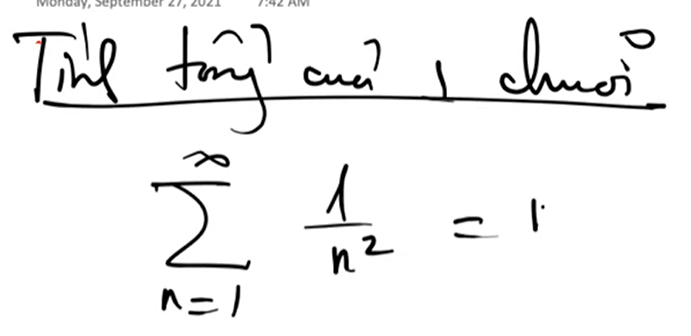 Monday, September 27, 2021 7:42 AM
Tính tổng của 1 chuỗi
∞
∑ 1/n² = 1
n=1